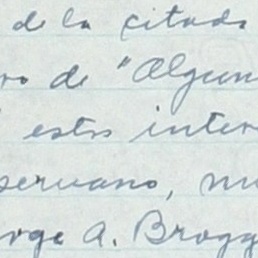 de la citada
ro de "Algun
estos inter
peruano, mu
orge A. Brogg